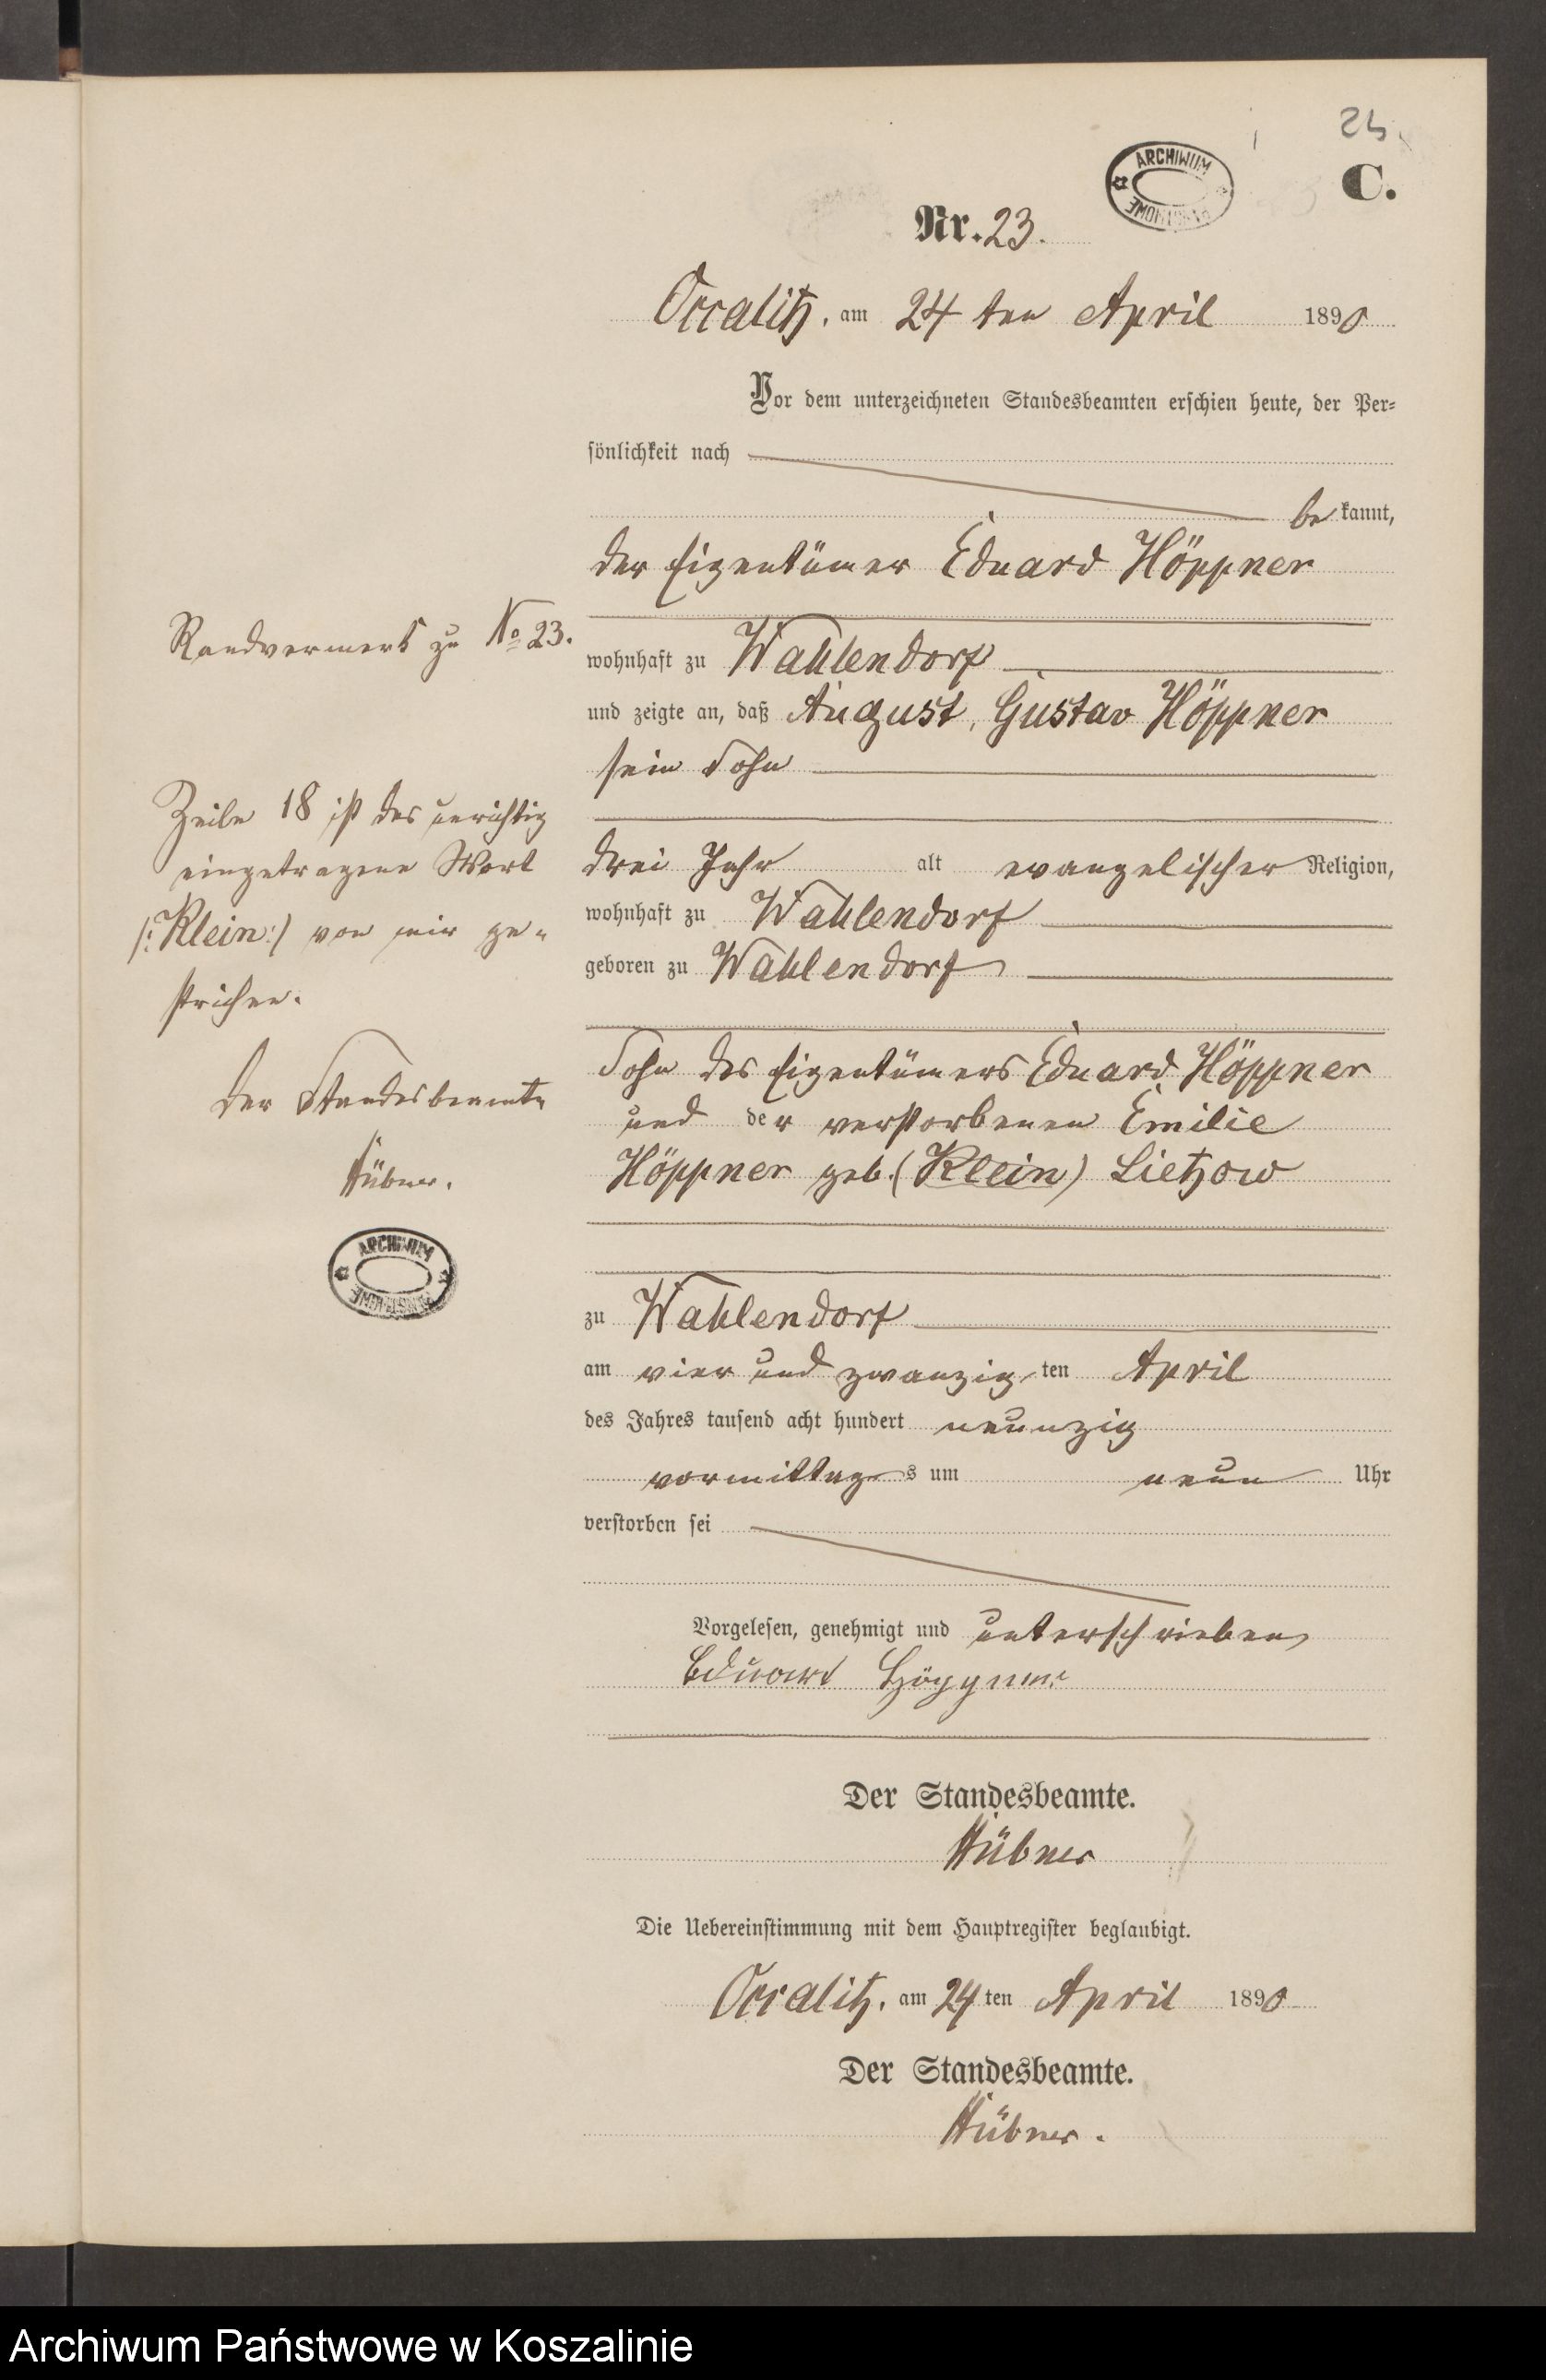 25.
ARCHIWUM
C.
Nr. 23.
Occalitz, am 24 ten April 1890
Vor dem unterzeichneten Standesbeamten erschien heute, der Per-
sönlichkeit nach
be kannt,
der Eigentümer Eduard Höppner
wohnhaft zu Wahlendorf
und zeigte an, daß August, Gustav Höppner
sein Sohn
drei Jahr alt evangelischer Religion,
wohnhaft zu Wahlendorf
geboren zu Wahlendorf
Sohn des Eigentümers Eduard Höppner
und der verstorbenen Emilie
Höppner geb. (Klein) Lietzow
zu Wahlendorf
am vier und zwanzig ten April
des Jahres tausend acht hundert neunzig
vormittags um neun Uhr
verstorben sei
Vorgelesen, genehmigt und unterschrieben
Eduard Höppner
Der Standesbeamte.
Hübner
Die Uebereinstimmung mit dem Hauptregister beglaubigt.
Occalitz, am 24 ten April 1890
Der Standesbeamte.
Hübner.
Randvermerk zu No 23.
Zeile 18 ist das unrichtig
eingetragene Wort
/:Klein:/ von mir ge-
strichen.
Der Standesbeamte
Hübner.
ARCHIWUM
Archiwum Państwowe w Koszalinie